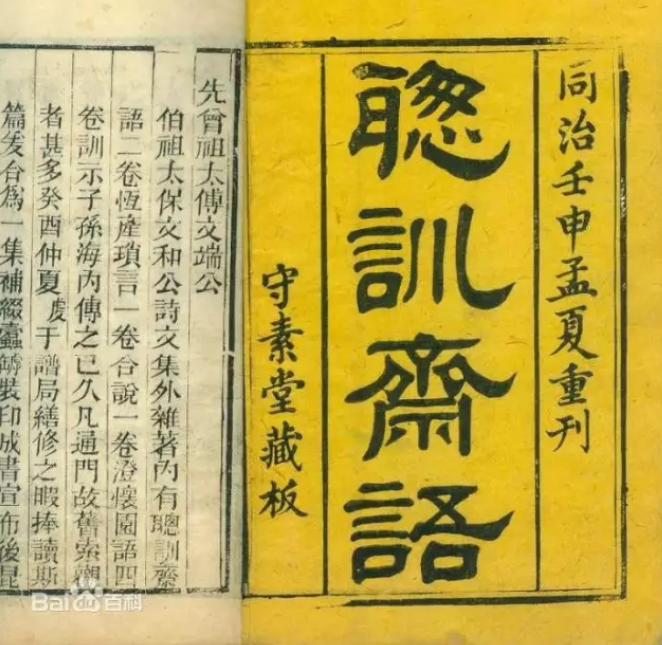 同治壬申孟夏重刊
聰訓齋語
守素堂藏板
先曾祖太傅文端公
伯祖太保文和公詩文集外雜著內有聰訓齋
語二卷恆產瑣言一卷合說一卷澄懷園語四
卷訓示子孫海內傳之已久凡通門故舊索觀
者甚多癸酉仲夏虔于譜局繕修之暇捧讀斯
篇爰合爲一集補綴蠹蝕裝印成書宣布後昆
Bai 百科